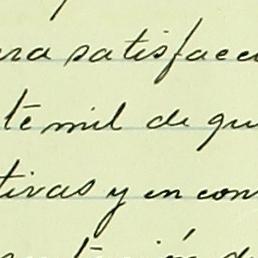 ra satisfacc
te mil de qu
tivas y en con